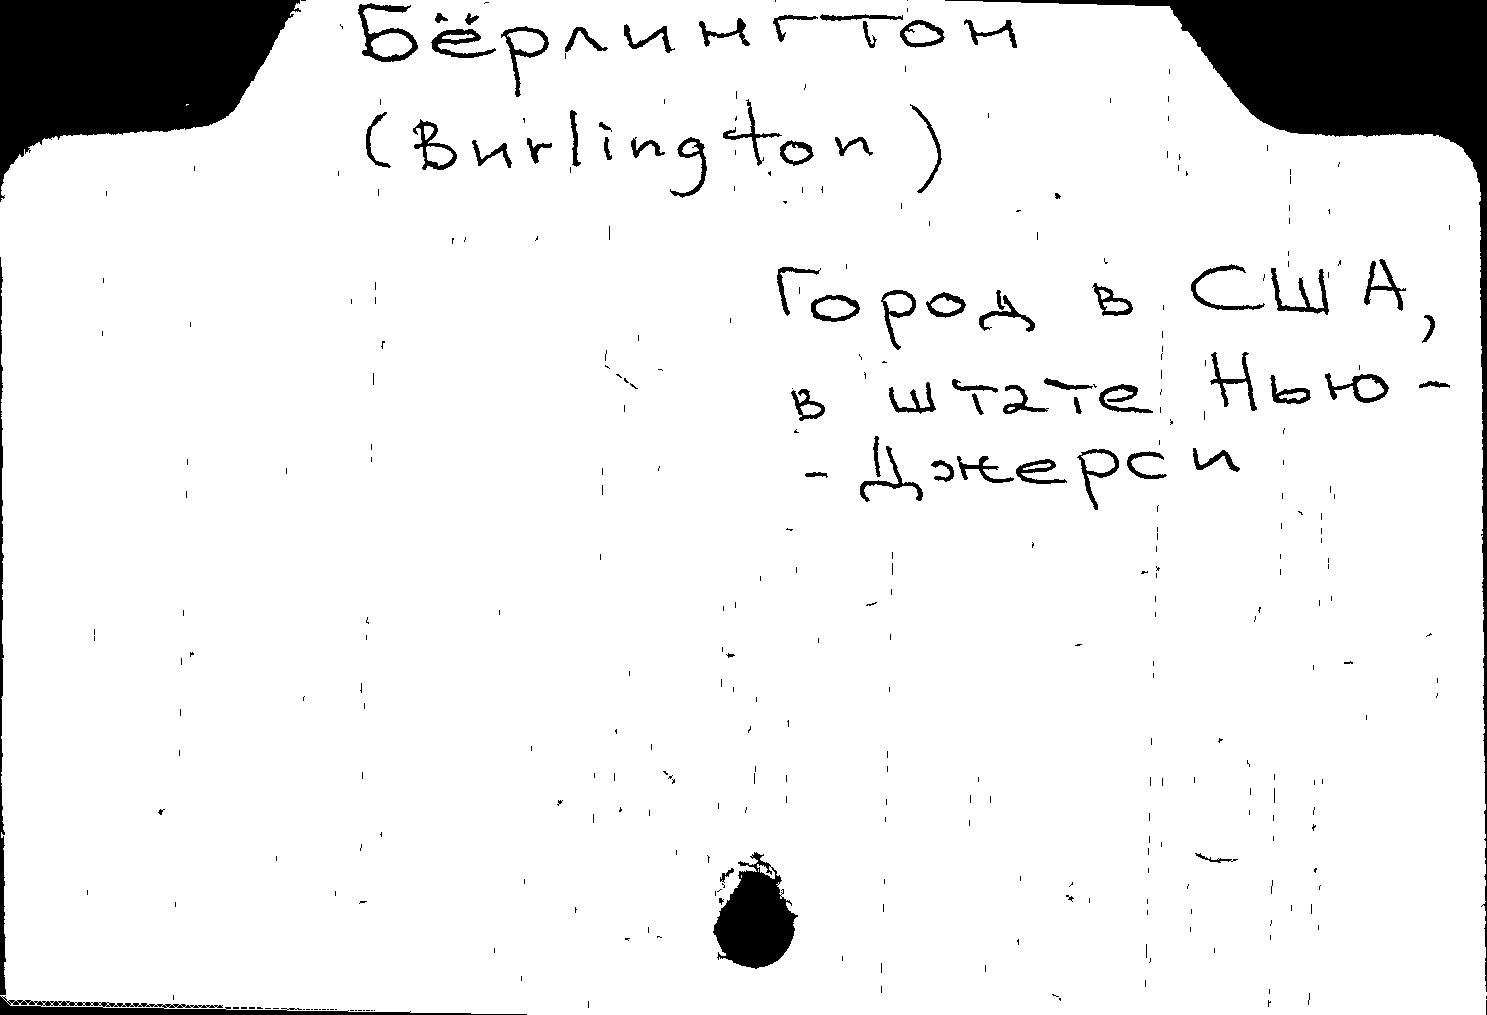 Бёрлингтон
(Burlington)
Город в США,
в штате Нью-
-Джерси